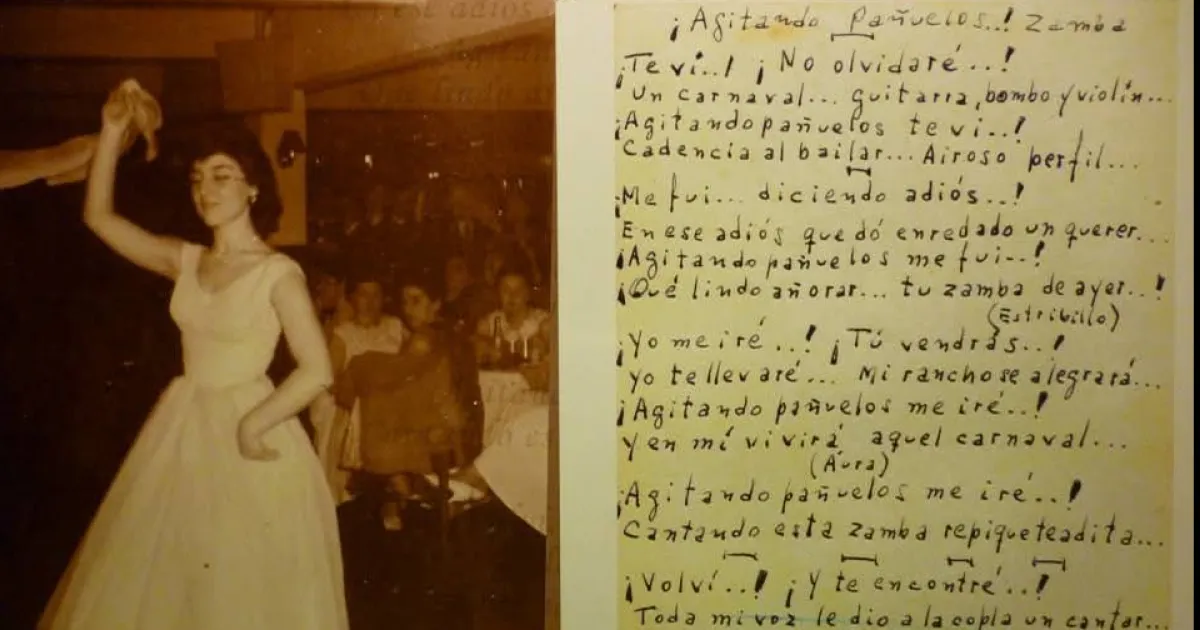 ¡Agitando Pañuelos..! Zamba
¡Te ví..! ¡No olvidaré..!
Un carnaval... guitarra, bombo y violín...
¡Agitando pañuelos te vi..!
Cadencia al bailar... Airoso perfil...
¡Me fui... diciendo adiós..!
En ese adiós quedó enredado un querer...
¡Agitando pañuelos me fui..!
¡Qué lindo añorar... tu zamba de ayer..!
(Estribillo)
¡Yo me iré..! ¡Tú vendrás..!
Yo te llevaré... Mi rancho se alegrará...
¡Agitando pañuelos me iré..!
Y en mí vivirá aquel carnaval...
(Áura)
¡Agitando pañuelos me iré..!
Cantando esta zamba repiqueteadita...
¡Volví..! ¡Y te encontré..!
Toda mi voz le dio a la copla un cantar...